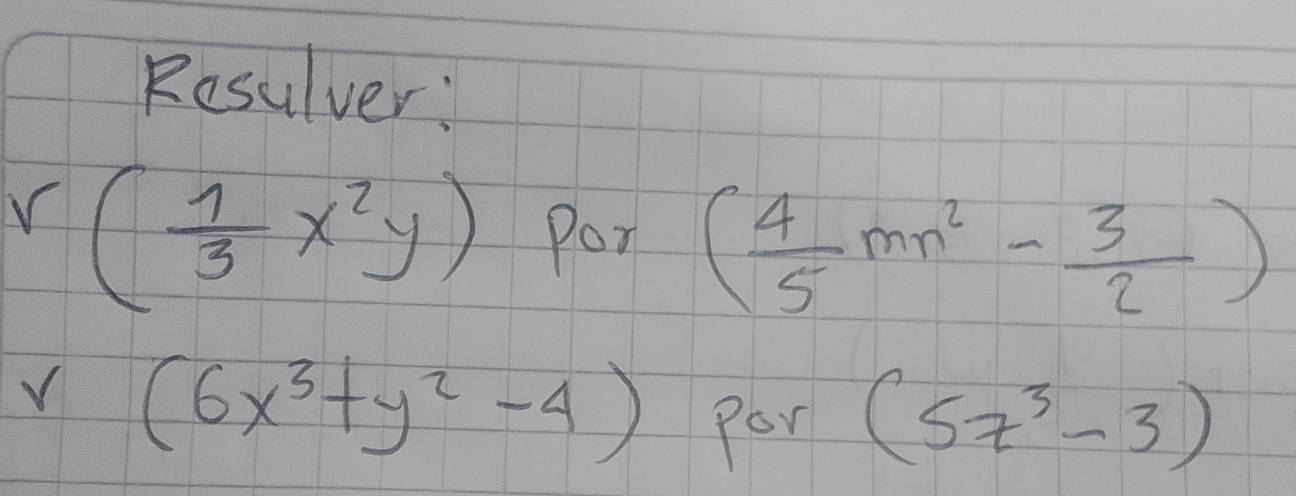 Resulver:
√ (1/3 x²y) Por (4/5 mn² - 3/2)
√ (6x³+y² -4) por (5z³-3)